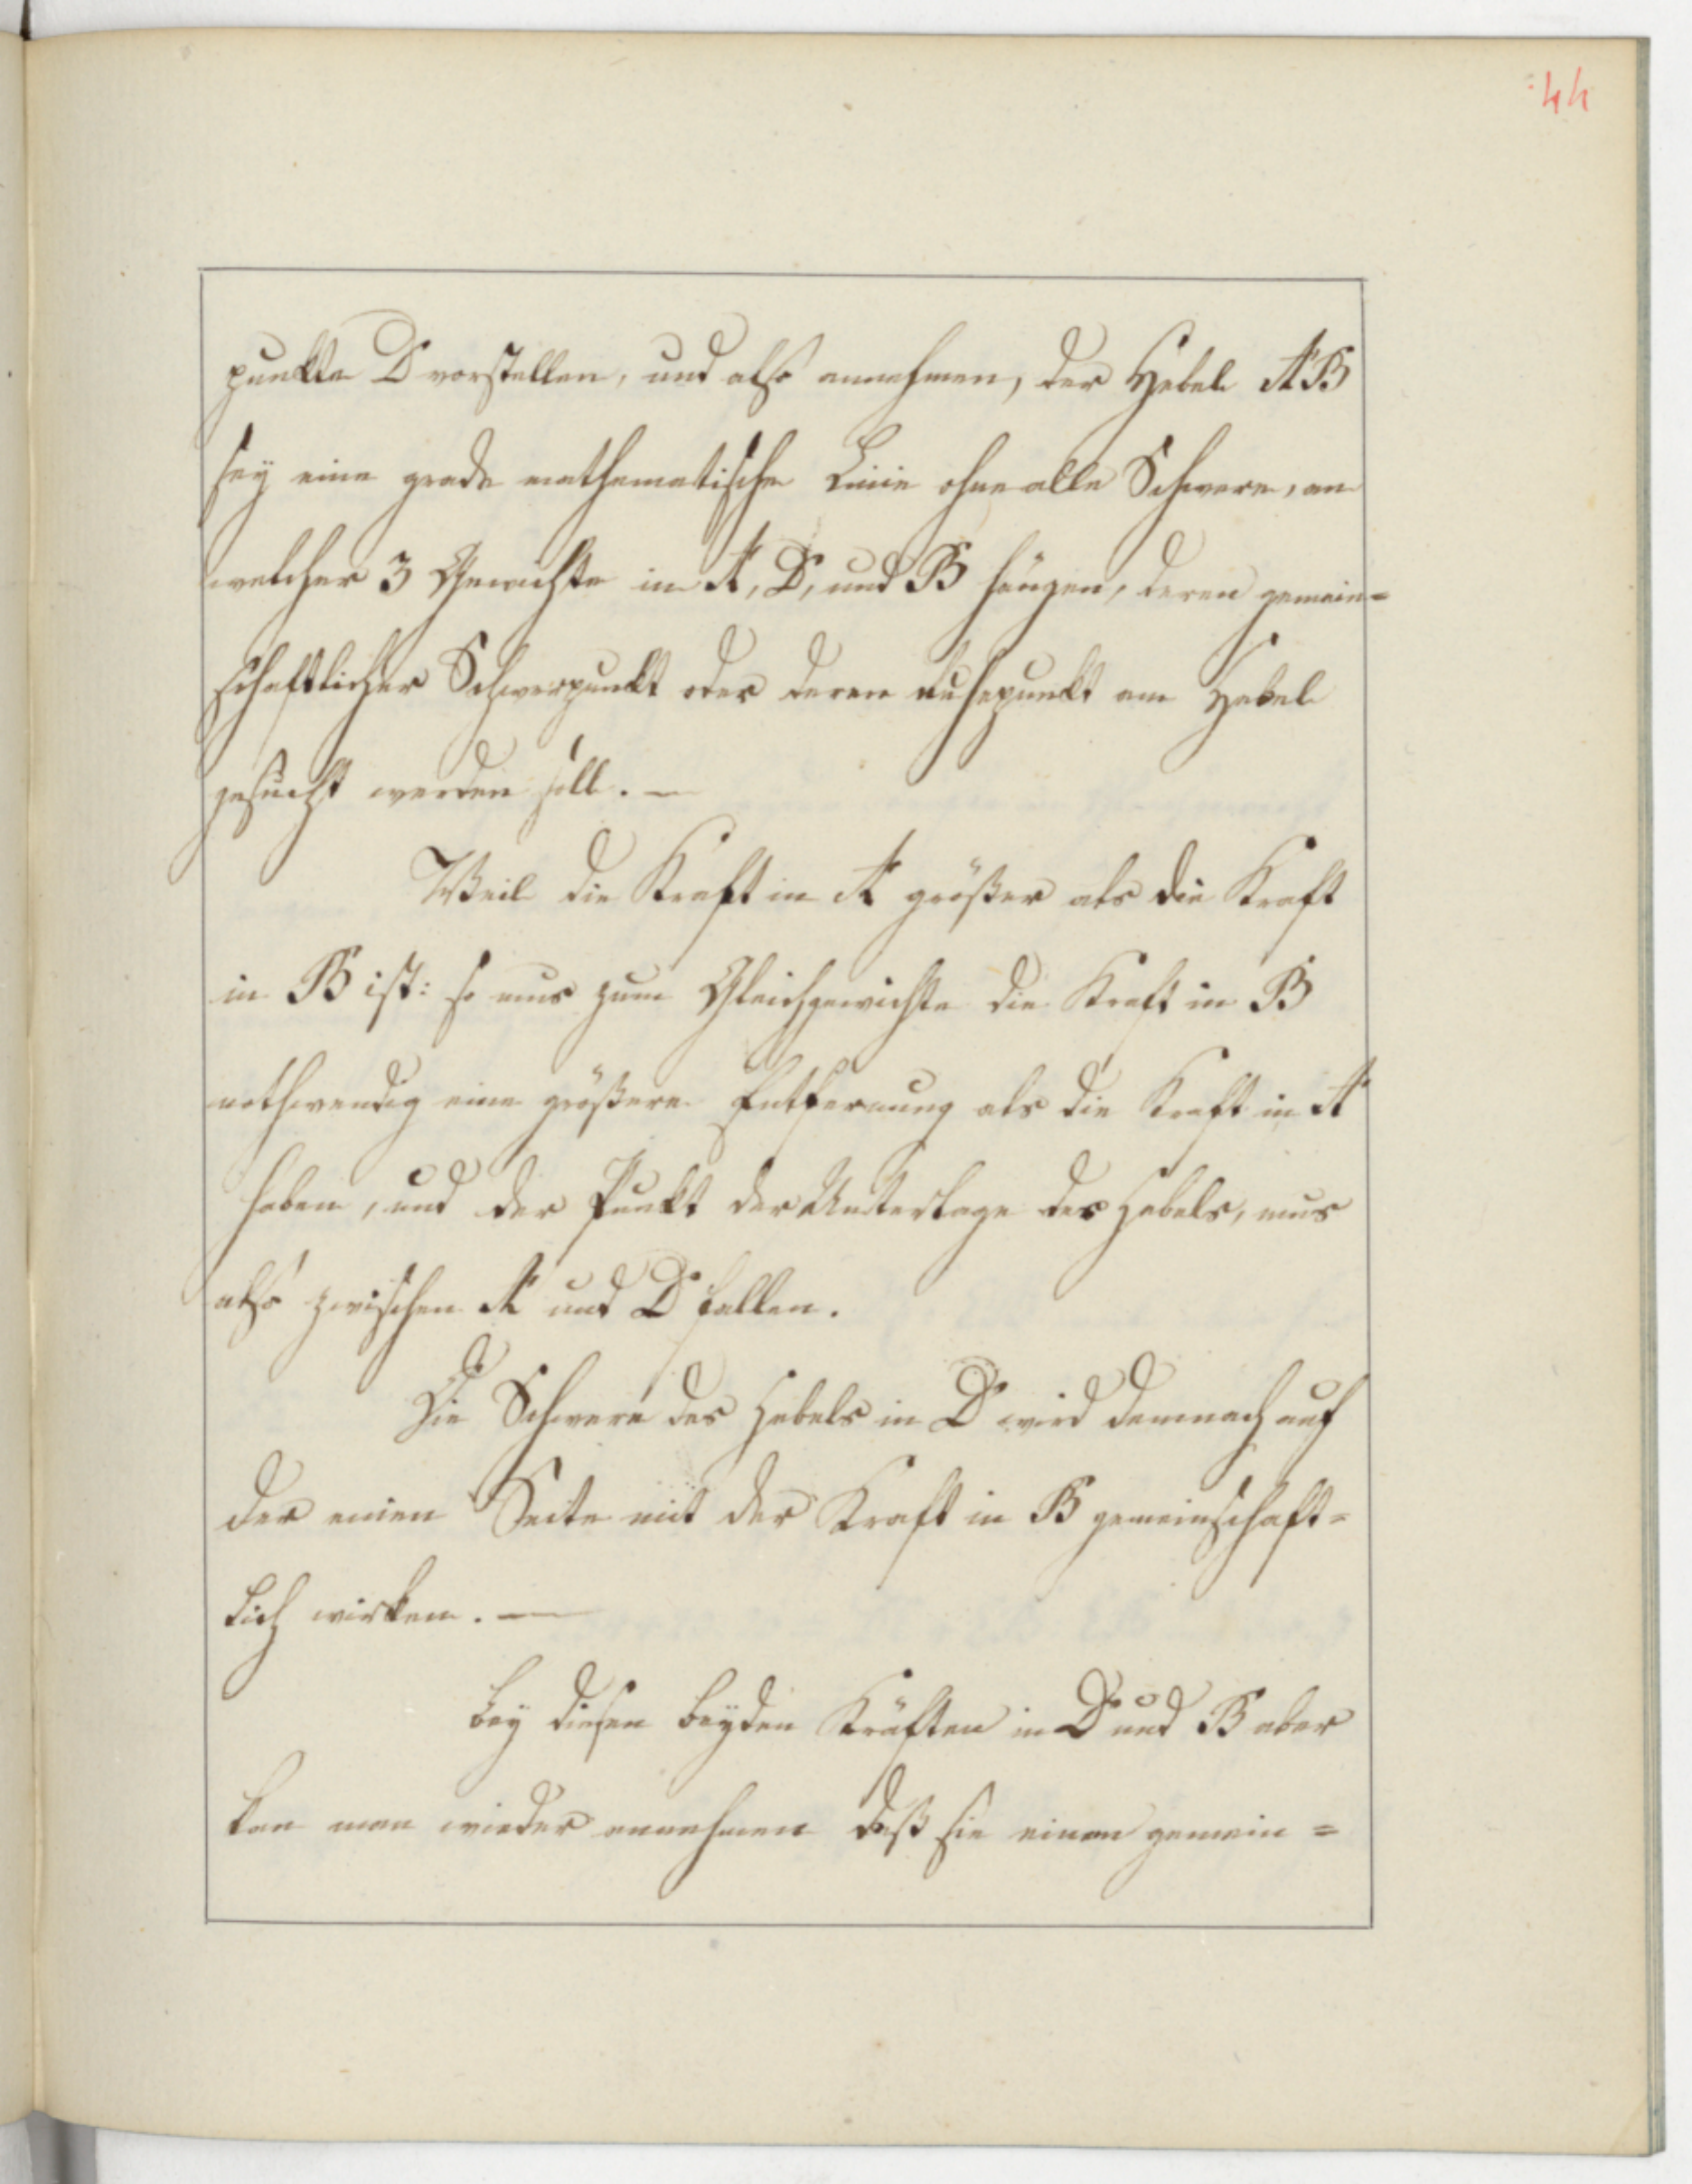 44
punkte D vorstellen, und also annehmen, der Hebel AB
sey eine grade mathematische Linie ohne alle Schwere, an
welcher 3 Gewichte in A, D, und B hängen, deren gemein=
schaftlicher Schwerpunkt oder deren Ruhepunkt am Hebel
gesucht werden soll. —
Weil die Kraft in A größer als die Kraft
in B ist: so mus zum Gleichgewichte die Kraft in B
nothwendig eine größere Entfernung als die Kraft in A
haben, und der Punkt der Unterlage des Hebels, mus
also zwischen A und D fallen.
Die Schwere des Hebels in D wird demnach auf
der einen Seite mit der Kraft in B gemeinschaft=
lich wirken. —
Bey diesen beyden Kräften in D und B aber
kan man wieder annehmen daß sie einen gemein=